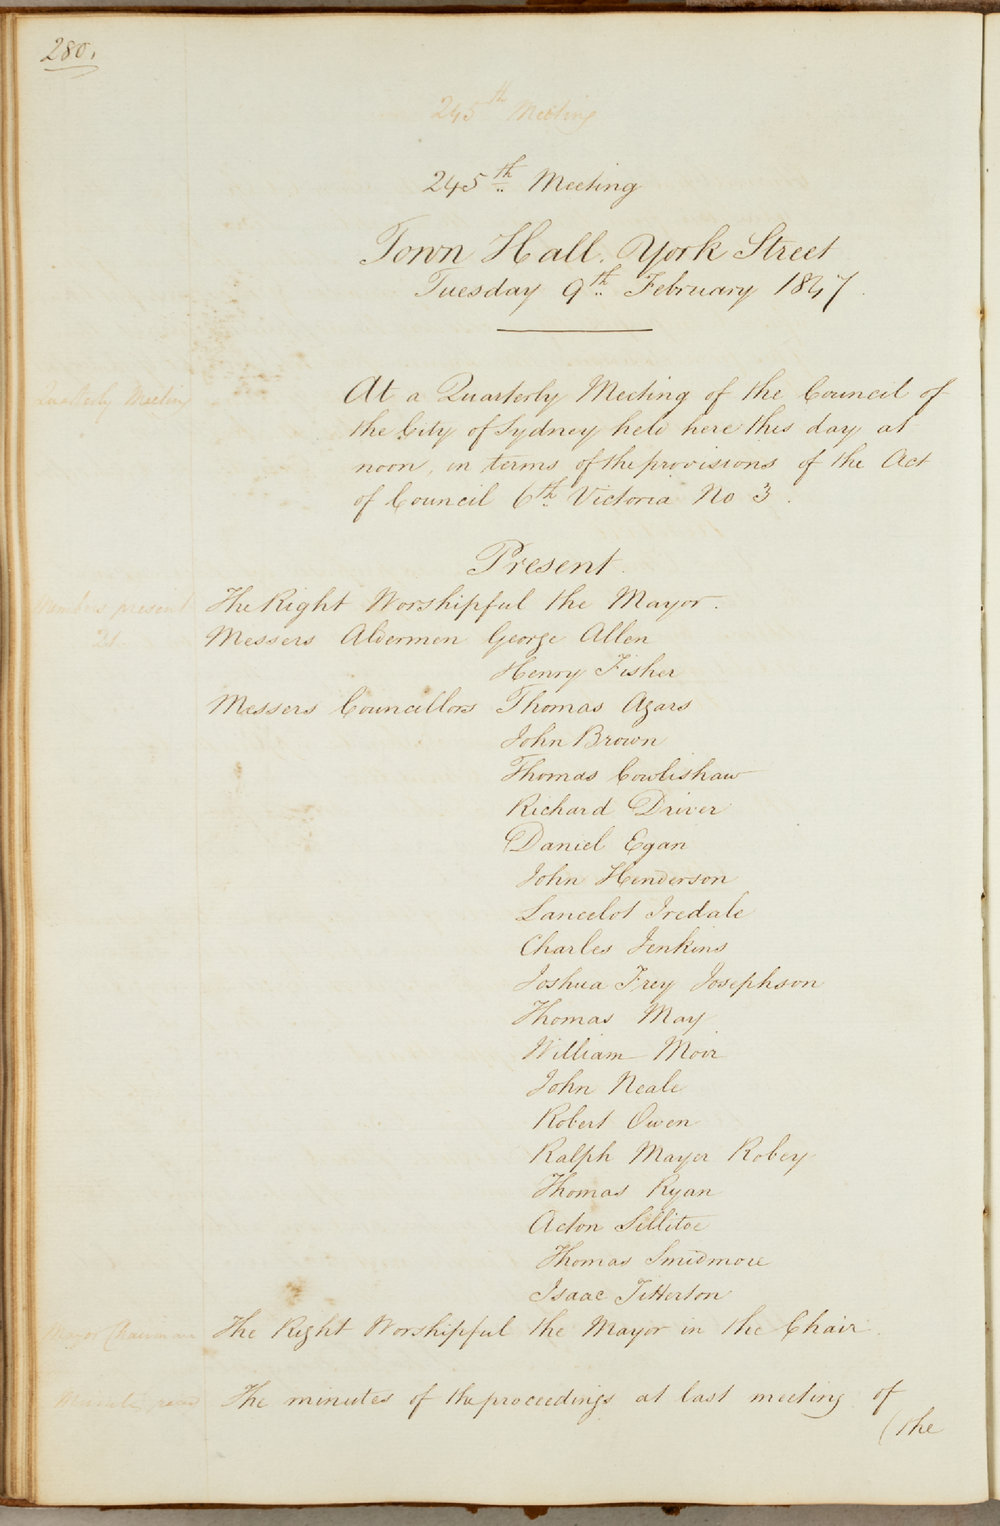 280.
245th Meeting
245th Meeting
Town Hall. York Street
Tuesday 9th February 1847.
Quarterly Meeting
At a Quarterly Meeting of the Council of
the City of Sydney held here this day at
noon, in terms of the provisions of the Act
of Council 6th Victoria No 3.
Present.
Members present
21
The Right Worshipful the Mayor.
Messers Aldermen George Allen
Henry Fisher
Messers Councillors Thomas Agars
John Brown
Thomas Cowlishaw
Richard Driver
Daniel Egan
John Henderson
Lancelot Iredale
Charles Jenkins
Joshua Frey Josephson
Thomas May
William Moir
John Neale
Robert Owen
Ralph Mayer Robey
Thomas Ryan
Acton Sillitoe
Thomas Smidmore
Isaac Titterton
Mayor Chairman
The Right Worshipful the Mayor in the Chair.
Minutes read
The minutes of the proceedings at last meeting of
(the